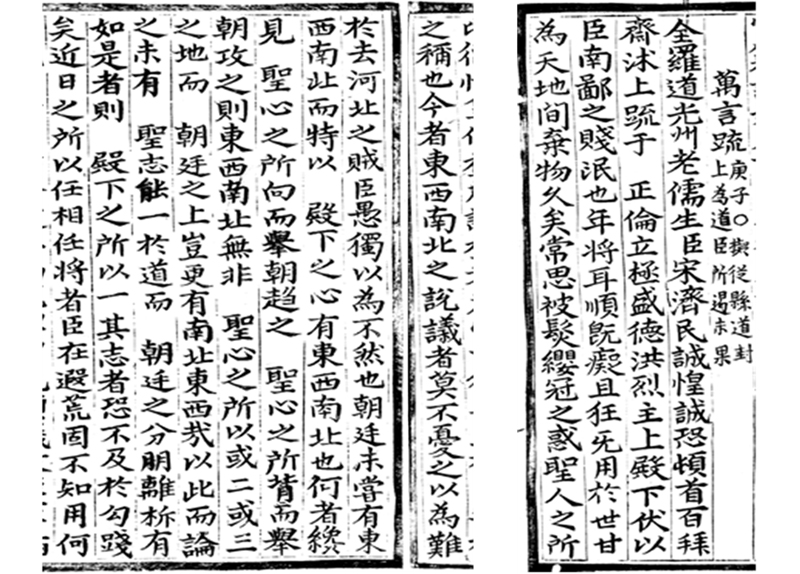 萬言䟽
庚子○擬從縣道封
上為道臣所遏未果
全羅道光州老儒生臣宋濟民誠惶誠恐頓首百拜
齋沐上䟽于 正倫立極盛德洪烈主上殿下伏以
臣南鄙之賤氓也年將耳順旣癡且狂旡用於世甘
為天地間棄物久矣常思被髮纓冠之惑聖人之所
之稱也今者東西南北之說議者莫不憂之以為難
於去河北之賊臣愚獨以為不然也朝廷未嘗有東
西南北而特以 殿下之心有東西南北也何者纔
見 聖心之所向而擧朝趨之 聖心之所背而擧
朝攻之則東西南北無非 聖心之所以或二或三
之地而 朝廷之上豈更有南北東西㢤以此而論
之未有 聖志能一於道而 朝廷之分朋離析有
如是者則 殿下之所以一其志者恐不及於勾踐
矣近日之所以任相任將者臣在遐荒固不知用何